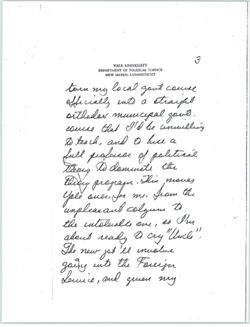 3
YALE UNIVERSITY
DEPARTMENT OF POLITICAL SCIENCE
NEW HAVEN, CONNECTICUT
turn my local govt course
officially into a straight
orthodox municipal govt.
course that I'd be unwilling
to teach, and to hire a
full professor of political
theory to dominate the
Policy program. This moves
Yale over, for me, from the
unpleasant column to
the intolerable one, so I'm
about ready to cry "Uncle".
The new job'll involve
going into the Foreign
Service, and given my